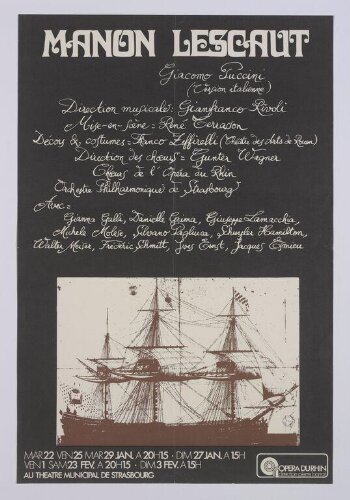 MANON LESCAUT
Giacomo Puccini
(Version italienne)
Direction musicale: Gianfranco Rivoli
Mise-en-scène = René Terrasson
Décors & costumes = Franco Zeffirelli (Théâtre des Arts de Rouen)
Direction des chœurs = Gunter Wagner
Chœurs de l'Opéra du Rhin
Orchestre Philharmonique de Strasbourg
Avec =
Gianna Galli, Danielle Grima, Giuseppe Lamacchia,
Michele Molese, Silvano Pagliuca, Schuyler Hamilton,
Walter Maser, Frédéric Schmitt, Yves Ernst, Jacques
MAR 22 VEN 25 MAR 29 JAN. A 20H15 · DIM 27 JAN. A 15H
VEN 1 SAM 23 FEV. A 20H15 · DIM 3 FEV. A 15H
AU THEATRE MUNICIPAL DE STRASBOURG
OPERA DU RHIN